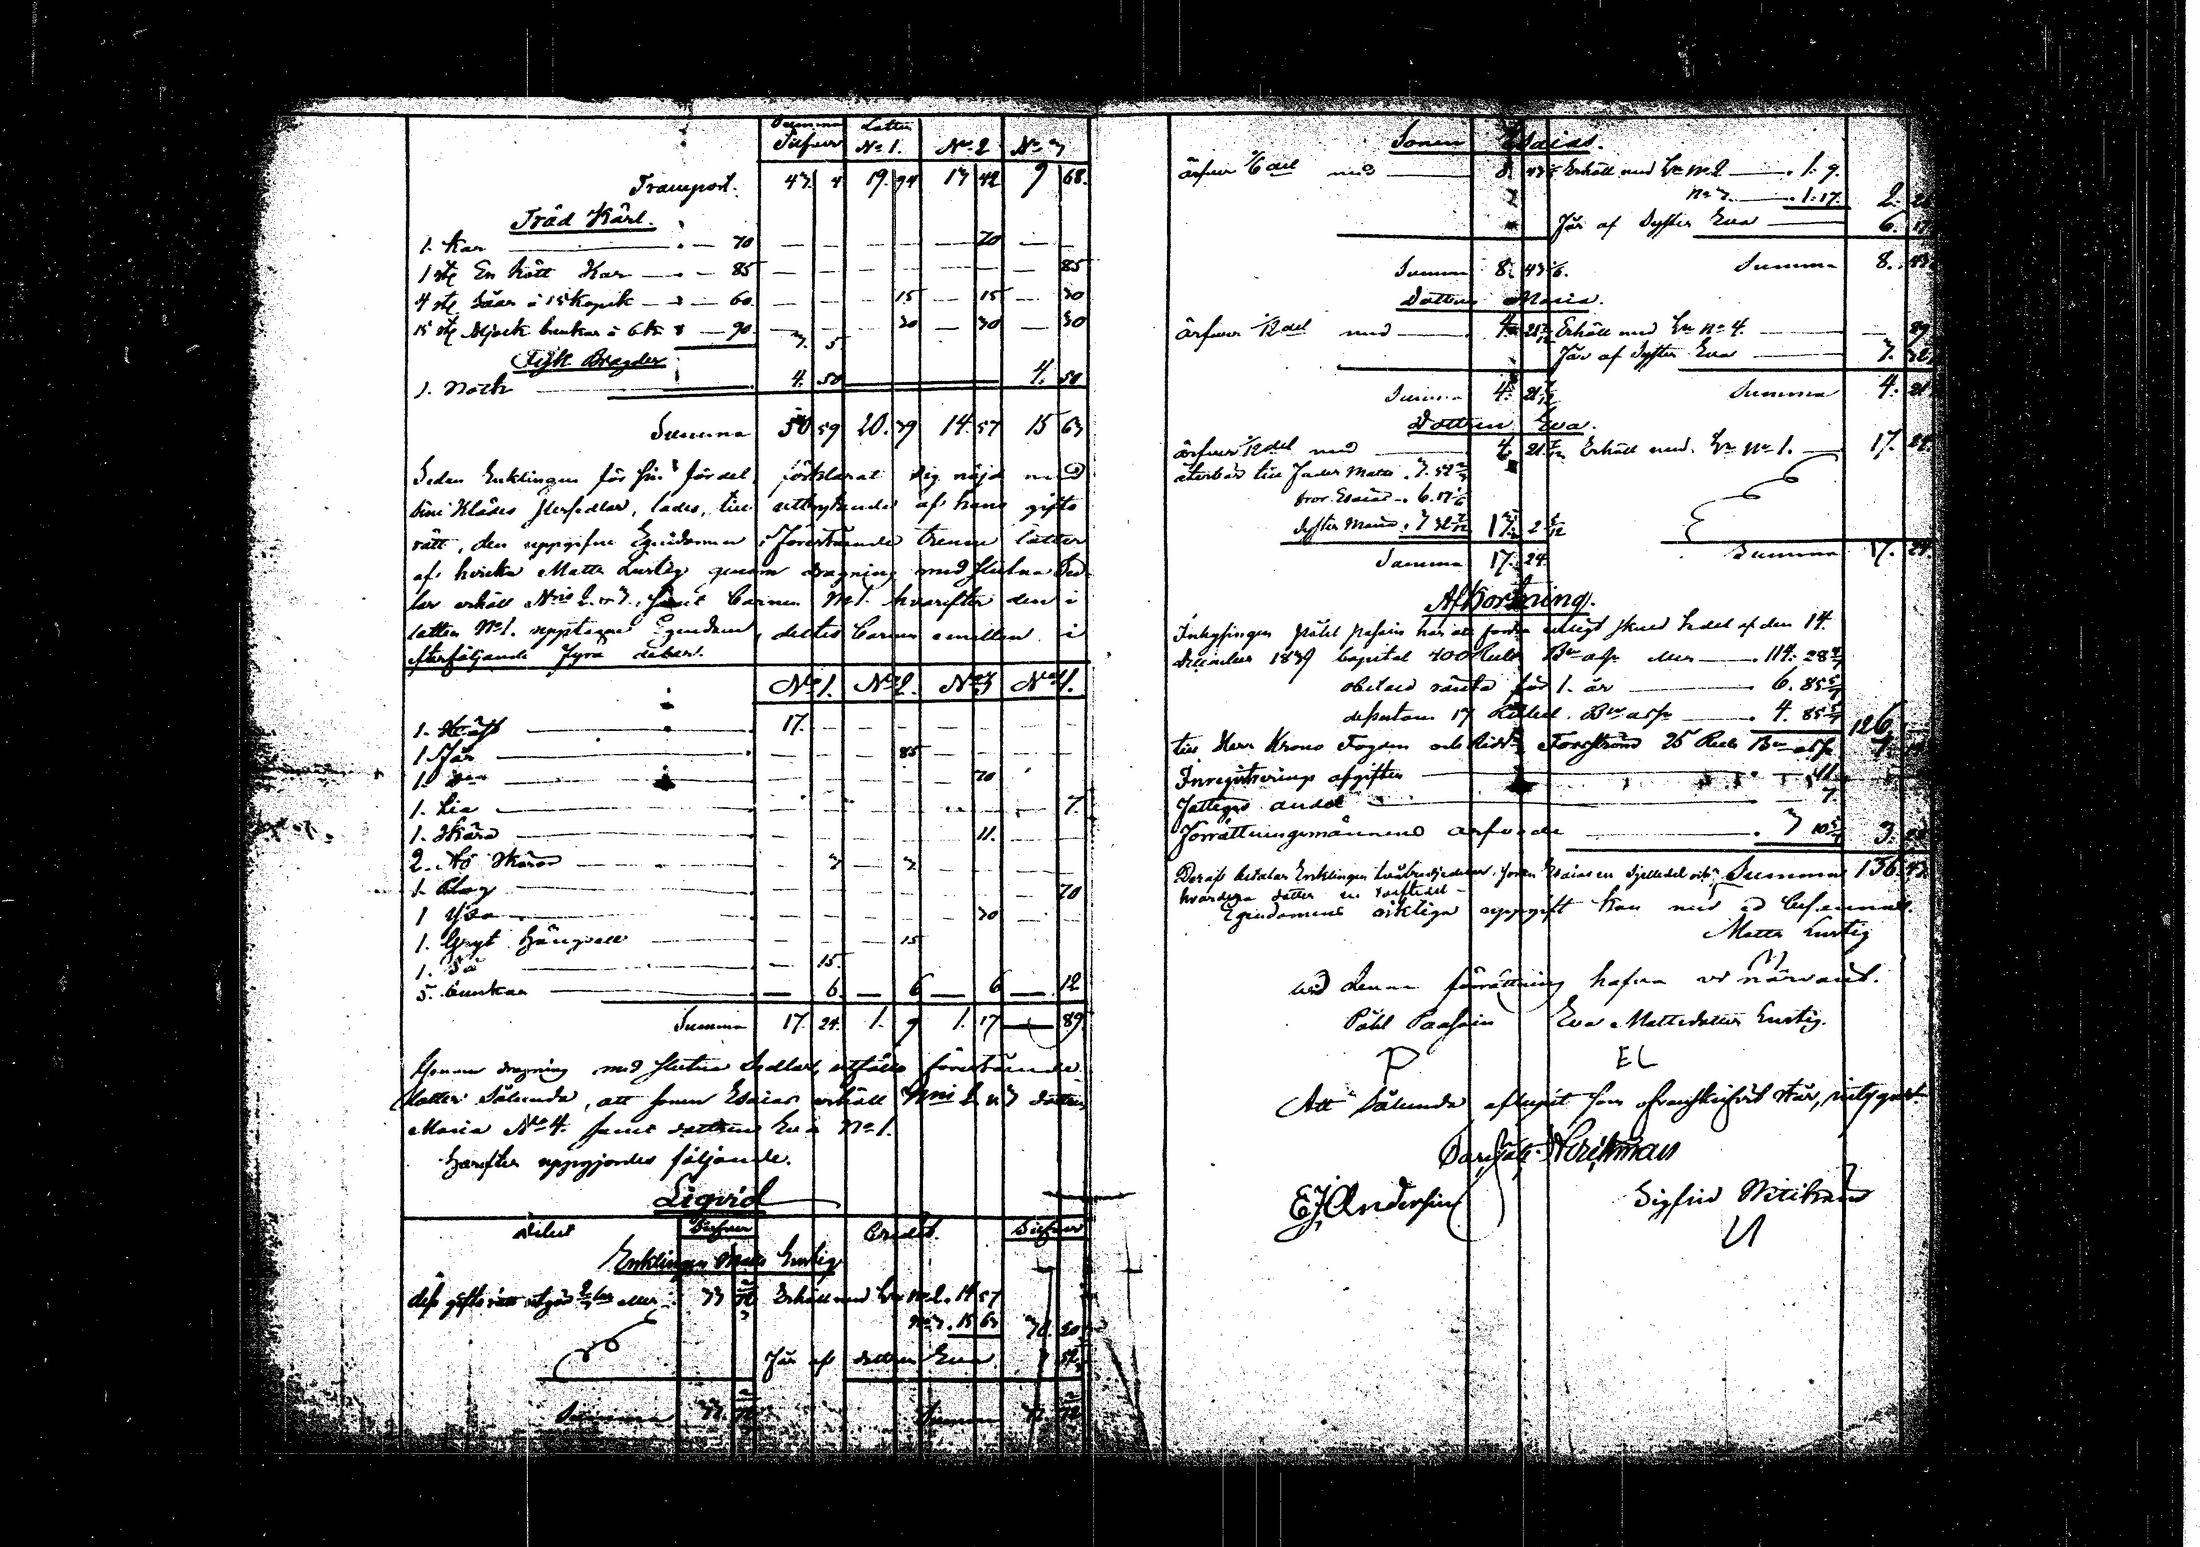 Summa Silfver Lotten No 1. No 2 No 3
Transport. 43. 4 19. 94 13 42 9 68.
Träd Kärl.
1. Kar 70 70
1 st En hått Kar 85 85
4 st Såar á 15 kopek 60 15 15 30
15 st Mjölk bunkar á 6 k 90 3. 5 30 30 30
Fisk Bragder
1. Noth 4. 50 4. 50
Summa 50 59 20. 39 14. 57 15 63
Sedan Enklingen för sin fördel förklarat sig nöjd med
sine Klädes persedlar, lades, till utbrytande af hans gifto
rätt, den uppgifne Egendomen i förestående trenne lotter
af hvilka Matts Lurtig genom dragning med slutna Sed
lar erhöll N:ris 2. 3. samt barnen No 1. hvarefter den i
lotten No 1. upptagne Egendom, deltes barnen emellan i
efterföljande fyra delar.
No 1. No 2. No 3 No 4.
1. 17.
1 85
1. 70
1. Lia 7.
1. Skära 11.
2. Hö 3 3
1. Plog 70
1 30
1. Gryt Hängsell 15
1. Så 15.
5. bunkar 6 6 6 12
Summa 17. 24. 1. 9 1. 17 89
Genom dragning med slutna Sedlar, utföllo förestående
Lotter Sålunda, att sonen Esaias erhöll N:ris 2 & 3 dottren
Maria No 4. samt dottren Eva No 1.
Härefter uppgjordes följande.
Liqvid
Debet Silfver Credit. Silfver
Enklingen Matts Lurtig
dess giftorätt utgör 2/3 eller 33 72 Erhöll med Lott No 2. 14 57
No 3. 15 63 30. 20
Får af dottren Eva 3 52
Summa 33. 72 Summa 33. 72
Sonen Esaias.
ärfver 1/6 del med 8. 43 Erhöll med Lott No 2 1. 9.
No 3. 1. 17. 2. 26
Får af Syster Eva 6. 17
Summa 8. 43 Summa 8. 43
Dottren Maria.
ärfver 1/12 del med 4. 21 Erhöll med Lott No 4. 89
Får af Syster Eva 3. 32
Summa 4. 21 Summa 4. 21
Dottren Eva.
ärfver 1/12 del med 4. 21 Erhöll med Lott No 1. 17. 24.
återbär till Fader Matts 3. 52
bror Esaias 6. 17
Syster Maria 3 32 13. 2
Summa 17. 24. Summa 17. 24.
Afkortning.
Inhysingen Påhl Paasain har att fordra enligt skuldsedel af den 14.
december 1839 Capital 400 Rubel B:co ass: eller 114. 28
obetald ränta för 1. år 6. 85
dessutom 17 Rubel B:co ass: 4. 85 126
till Herr Krono Fogden och Ridd: Forsström 25 Rub B:co ass: 7.
Inregistrerings afgiften 41
Fattiges andel 7.
Förrättningsmännens arfvode 3 10 3.
Deraf betalar Enklingen tvåtredjedelar, sonen Esaias en Sjettedel och Summa 136. 43
hvardera dotter en tolftedel
Egendomens riktiga uppgift kan med ed besanna.
Matts Lurtig
Wid denna förrättning hafva vi närvarit.
Påhl Paasain Eva Mattsdotter Lurtig.
P EL
Att Sålunda aflupit som ofvanskrifvit står, intygar.
E J Andersin Sigfrid